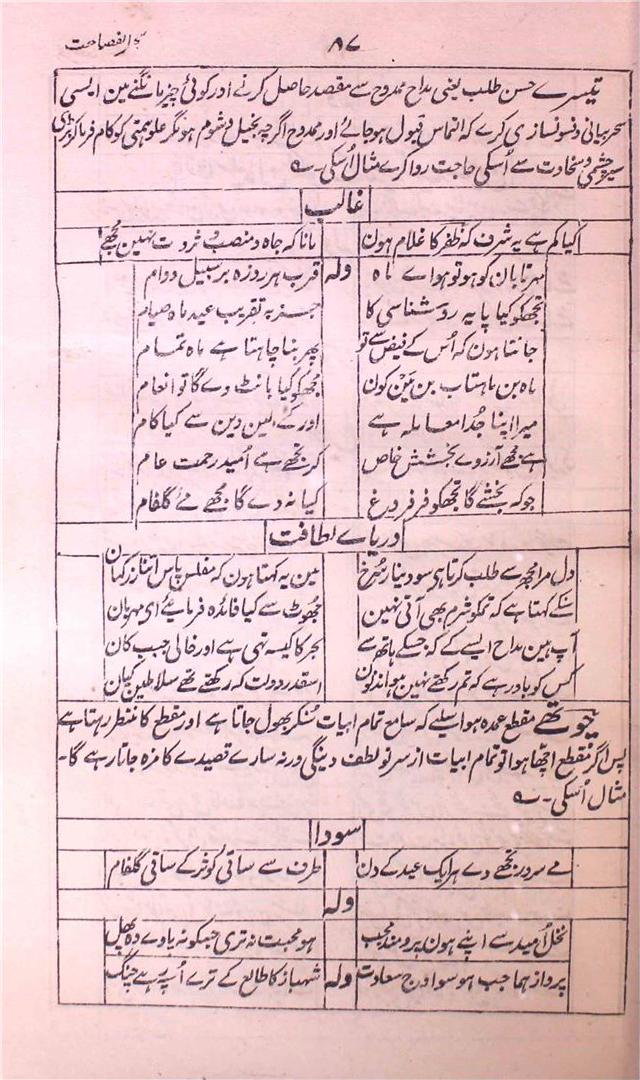 بحر الفصاحت
۸۷
تیسرے حسن طلب یعنی مداح ممدوح سے مقصد حاصل کرنے اور کوئی چیز مانگنے مین ایسی
سحر بیانی و فسونسازی کرے کہ التماس قبول ہو جائے اور ممدوح اگرچہ بخیل و شوم ہو مگر علو ہمتی کو کام فرما کر بڑی
سیر چشمی و سخاوت سے اُسکی حاجت روا کرے مثال اُسکی۔ ؎
غالب
کیا کم ہے یہ شرف کہ ظفر کا غلام ہون
مانا کہ جاہ و منصب و ثروت نہین مجھے
ولہ
مہر تابان کو ہو تو ہو اے ماہ
قرب ہر روزہ بر سبیل دوام
تجھکو کیا پایہ روشناسی کا
جز بہ تقریب عید ماہ صیام
جانتا ہون کہ اُس کے فیض سے تو
پھر بنا چاہتا ہے ماہ تمام
ماہ بن ماہتاب بن مَین کون
مجھکو کیا بانٹ دے گا تو انعام
میرا اپنا جُدا معاملہ ہے
اور کے لین دین سے کیا کام
ہے مجھے آرزوے بخشش خاص
گر تجھے ہے اُمید رحمت عام
جو کہ بخشے گا تجھکو فر فروغ
کیا نہ دے گا مجھے مے گلفام
دریاے لطافت
دل مرا مجھ سے طلب کرتا ہی سو دینار سُرخ
مین یہ کہتا ہون کہ مفلس پاس اتنا زر کہان
سنکے کہتا ہے کہ تمکو شرم بھی آتی نہین
جھوٹ سے کیا فائدہ فرمایئے ای مہربان
آپ ہین مداح ایسے کے کہ جسکے ہاتھ سے
بحر کا کیسہ تہی ہے اور خالی جیب کان
کس کو باور ہے کہ تم رکھتے نہین ہو اندنون
اسقدر دولت کہ رکھتے تھے سلاطین کیان
چوتھے مقطع عمدہ ہو اسلیے کہ سامع تمام ابیات سُنکر بھول جاتا ہے اور مقطع کا منتظر رہتا ہے
پس اگر مقطع اچھا ہوا تو تمام ابیات از سر نو لطف دینگی ورنہ سارے قصیدے کا مزہ جاتا رہے گا۔
مثال اُسکی۔ ؎
سودا
مے سرور تجھے دے ہر ایک عید کے دن
طرف سے ساقی کوثر کے ساقی گلفام
ولہ
نخل اُمید سے اپنے ہون برومند محب
ہو محبت نہ تری جسکو نہ پاوے وہ پھل
پرواز ہما جب ہو سو اوج سعادت
ولہ
شہباز کا طالع کے ترے اُسپہ ہے چنگ